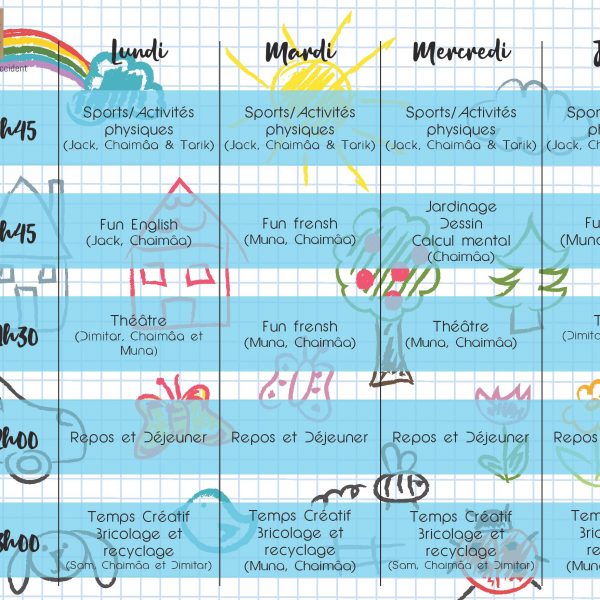 ccident
Lundi Mardi Mercredi J
h45
Sports/Activités
physiques
(Jack, Chaimâa & Tarik)
Sports/Activités
physiques
(Jack, Chaimâa & Tarik)
Sports/Activités
physiques
(Jack, Chaimâa & Tarik)
Spor
p
(Jack, C
h45
Fun English
(Jack, Chaimâa)
Fun frensh
(Muna, Chaimâa)
Jardinage
Dessin
Calcul mental
(Chaimâa)
Fu
(Mun
h30
Théâtre
(Dimitar, Chaimâa et
Muna)
Fun frensh
(Muna, Chaimâa)
Théâtre
(Muna, Chaimâa)
(Dimitar,
2h00
Repos et Déjeuner
Repos et Déjeuner
Repos et Déjeuner
Repos
h00
Temps Créatif
Bricolage et
recyclage
(Sam, Chaimâa et Dimitar)
Temps Créatif
Bricolage et
recyclage
(Muna, Chaimâa)
Temps Créatif
Bricolage et
recyclage
(Sam, Chaimâa et Dimitar)
Tem
Bri
r
(Mun